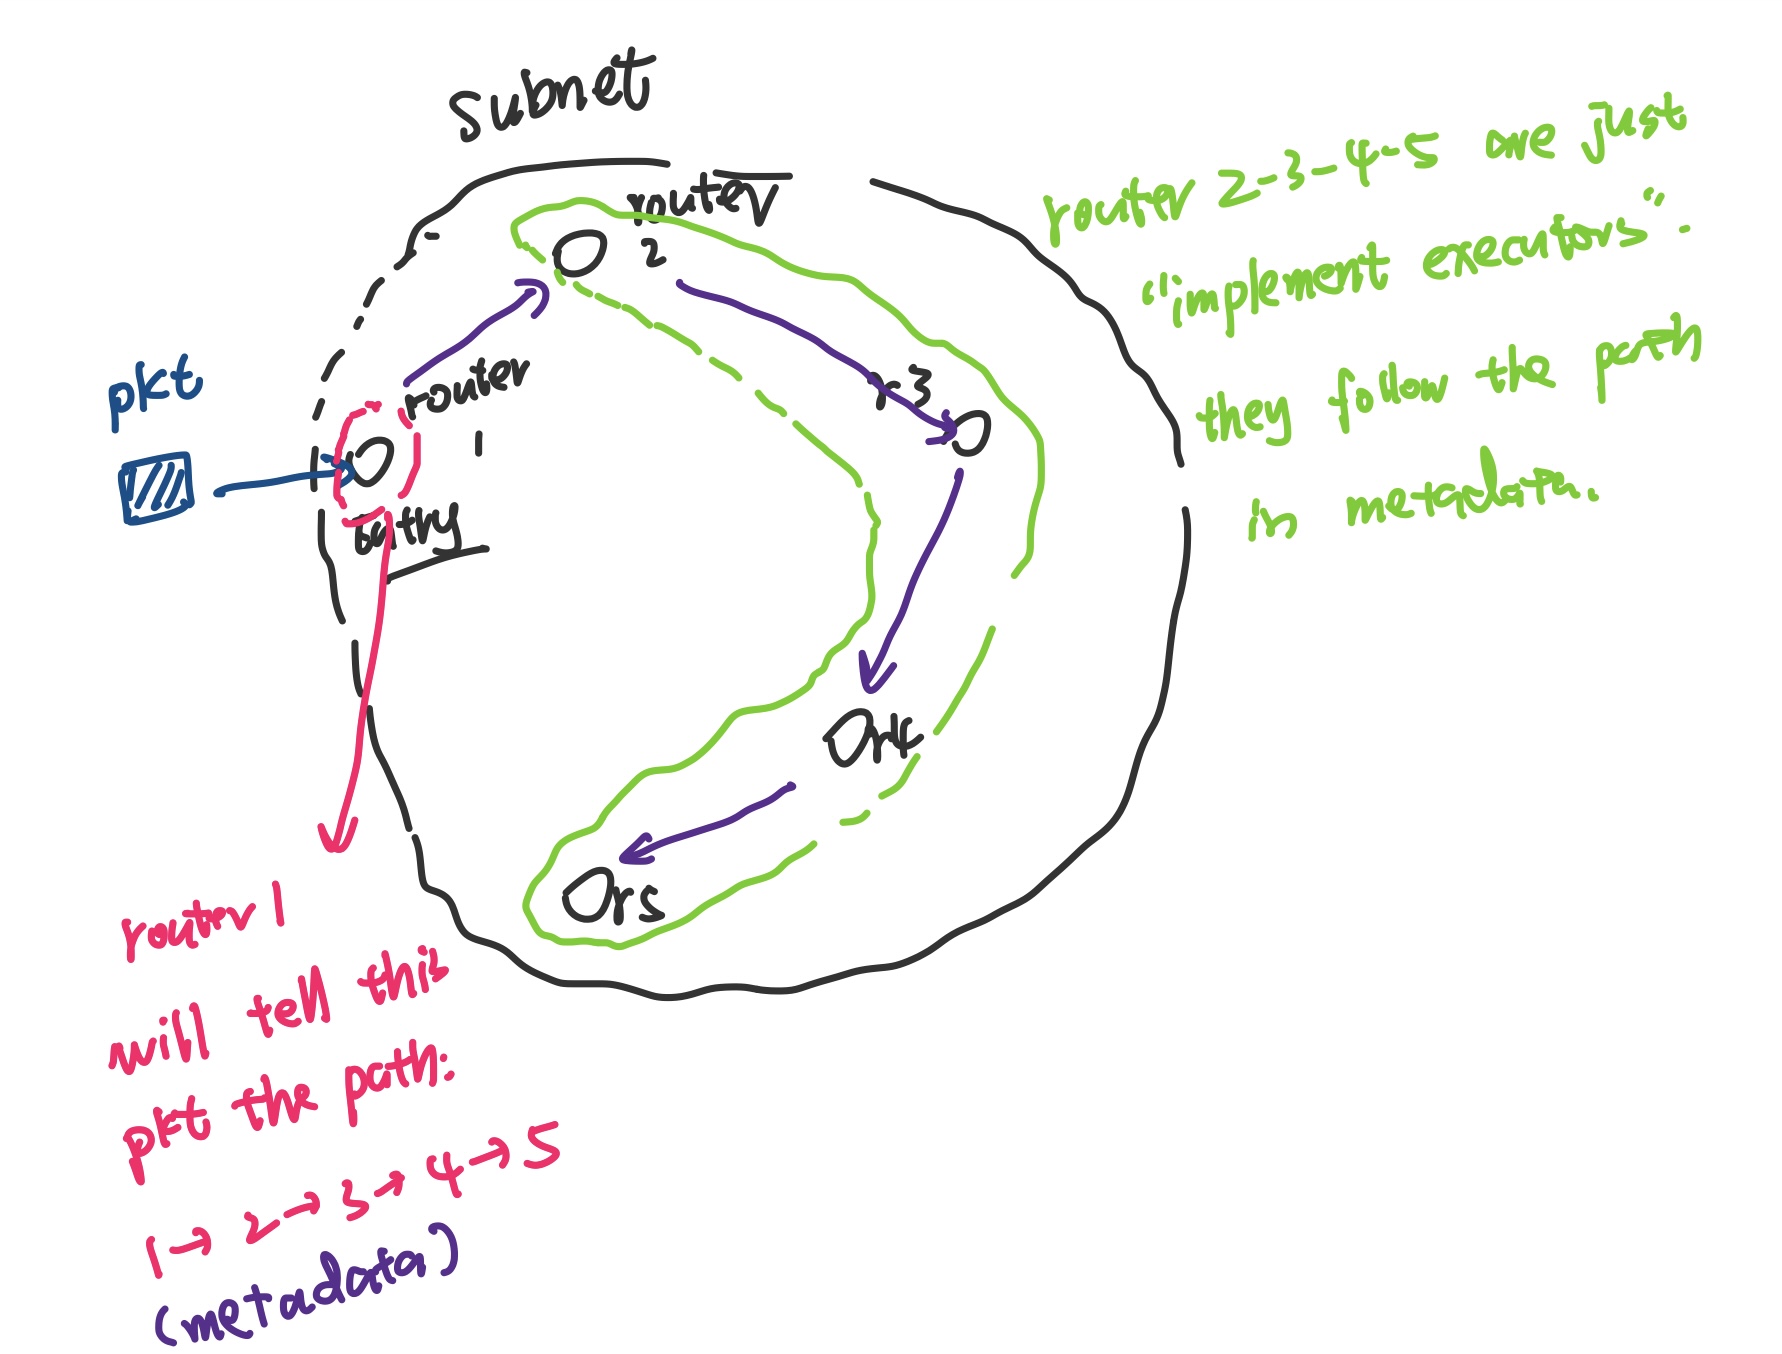 subnet
router
2
pkt
router
1
Entry
r3
r4
r5
router 2-3-4-5 are just
"implement executors".
they follow the path
in metadata.
router 1
will tell this
pkt the path:
1→2→3→4→5
(metadata)